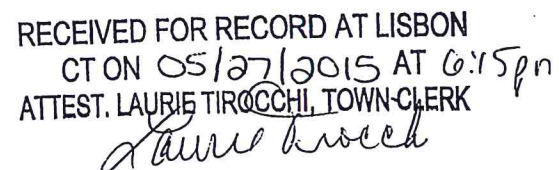 RECEIVED FOR RECORD AT LISBON
CT ON 05/27/2015 AT 6:15pm
ATTEST. LAURIE TIROCCHI, TOWN CLERK
Laurie Tirocchi